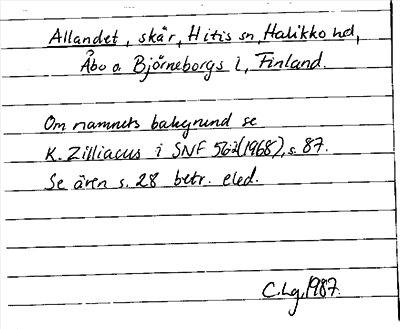 Allandet, skär, Hitis sn, Halikko hd,
Åbo o. Björneborgs l, Finland.
Om namnets bakgrund se
K. Zilliacus i SNF 562(1968), s. 87.
Se även s. 28 betr. eled.
C.Lg, 1987.